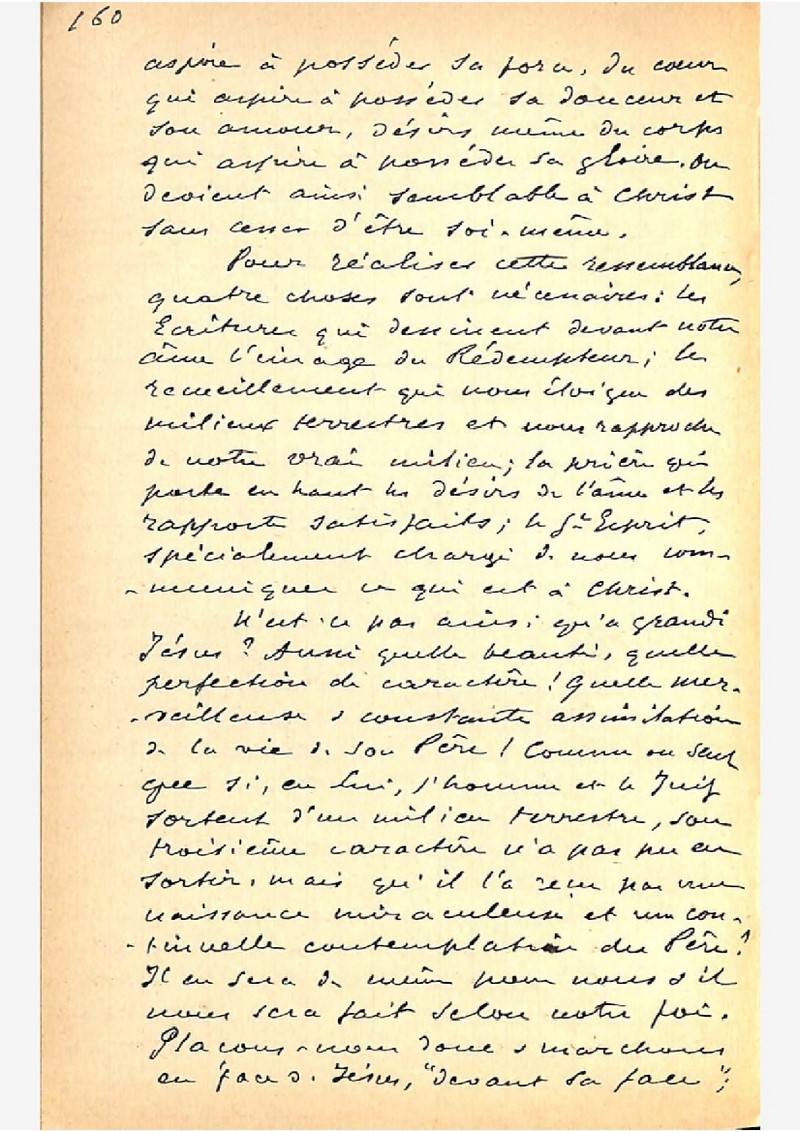 160
aspire à posséder sa force, du cœur
qui aspire à posséder sa douceur et
son amour, désirs même du corps
qui aspire à posséder sa gloire. On
devient ainsi semblable à Christ
sans cesser d'être soi-même.
Pour réaliser cette ressemblance,
quatre choses sont nécessaires: les
Ecritures qui dessinent devant notre
âme l'image du Rédempteur; le
recueillement qui nous éloigne des
milieux terrestres et nous rapproche
de notre vrai milieu; la prière qui
porte en haut les désirs de l'âme et les
rapporte satisfaits; le St Esprit,
spécialement chargé de nous com-
-muniquer ce qui est à Christ.
N'est-ce pas ainsi qu'a grandi
Jésus? Aussi quelle beauté, quelle
perfection de caractère! Quelle mer-
-veilleuse & constante assimilation
de la vie de son Père! Comme on sent
que si, en Lui, l'homme et le Juif
sortent d'un milieu terrestre, son
troisième caractère n'a pas pu en
sortir, mais qu'il l'a reçu par une
naissance miraculeuse et une con-
-tinuelle contemplation du Père!
Il en sera de même pour nous & il
nous sera fait selon notre foi.
Plaçons-nous donc & marchons
en face de Jésus, "devant sa face";